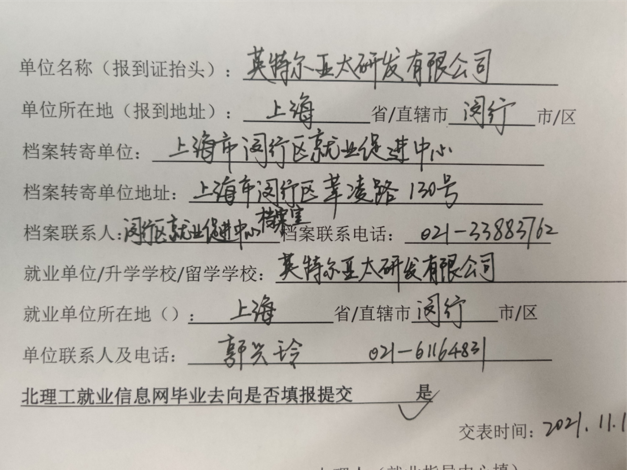 单位名称（报到证抬头）：英特尔亚太研发有限公司
单位所在地（报到地址）：上海 省/直辖市 闵行 市/区
档案转寄单位：上海市闵行区就业促进中心
档案转寄单位地址：上海市闵行区莘凌路130号
档案联系人：闵行区就业促进中心档案室 档案联系电话：021-33883762
就业单位/升学学校/留学学校：英特尔亚太研发有限公司
就业单位所在地（）：上海 省/直辖市 闵行 市/区
单位联系人及电话：郭兴玲 021-61164831
北理工就业信息网毕业去向是否填报提交 是
交表时间：2021.11.1